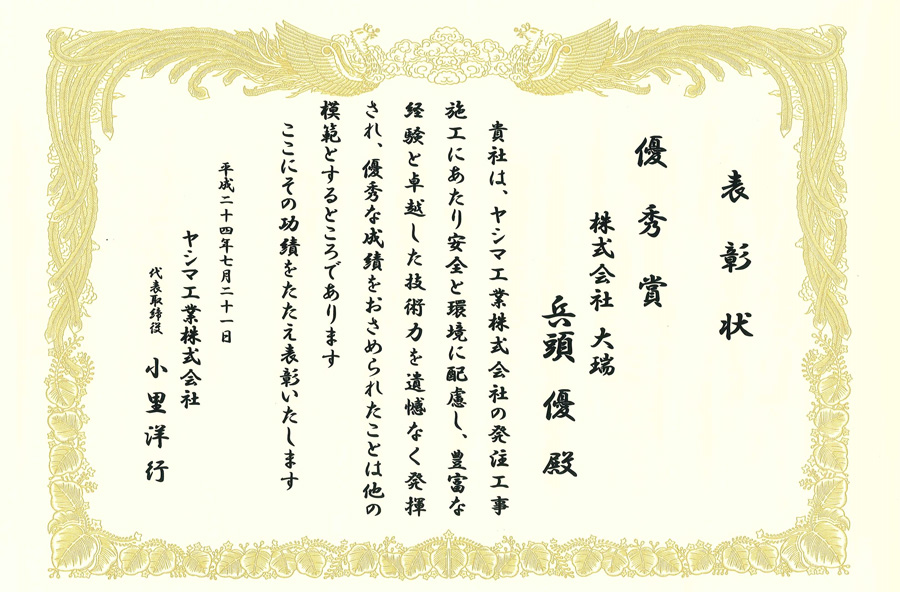 表彰状
優秀賞
株式会社 大瑞
兵頭 優 殿
貴社は、ヤシマ工業株式会社の発注工事
施工にあたり安全と環境に配慮し、豊富な
経験と卓越した技術力を遺憾なく発揮
され、優秀な成績をおさめられたことは他の
模範とするところであります
ここにその功績をたたえ表彰いたします
平成二十四年七月二十一日
ヤシマ工業株式会社
代表取締役 小里洋行